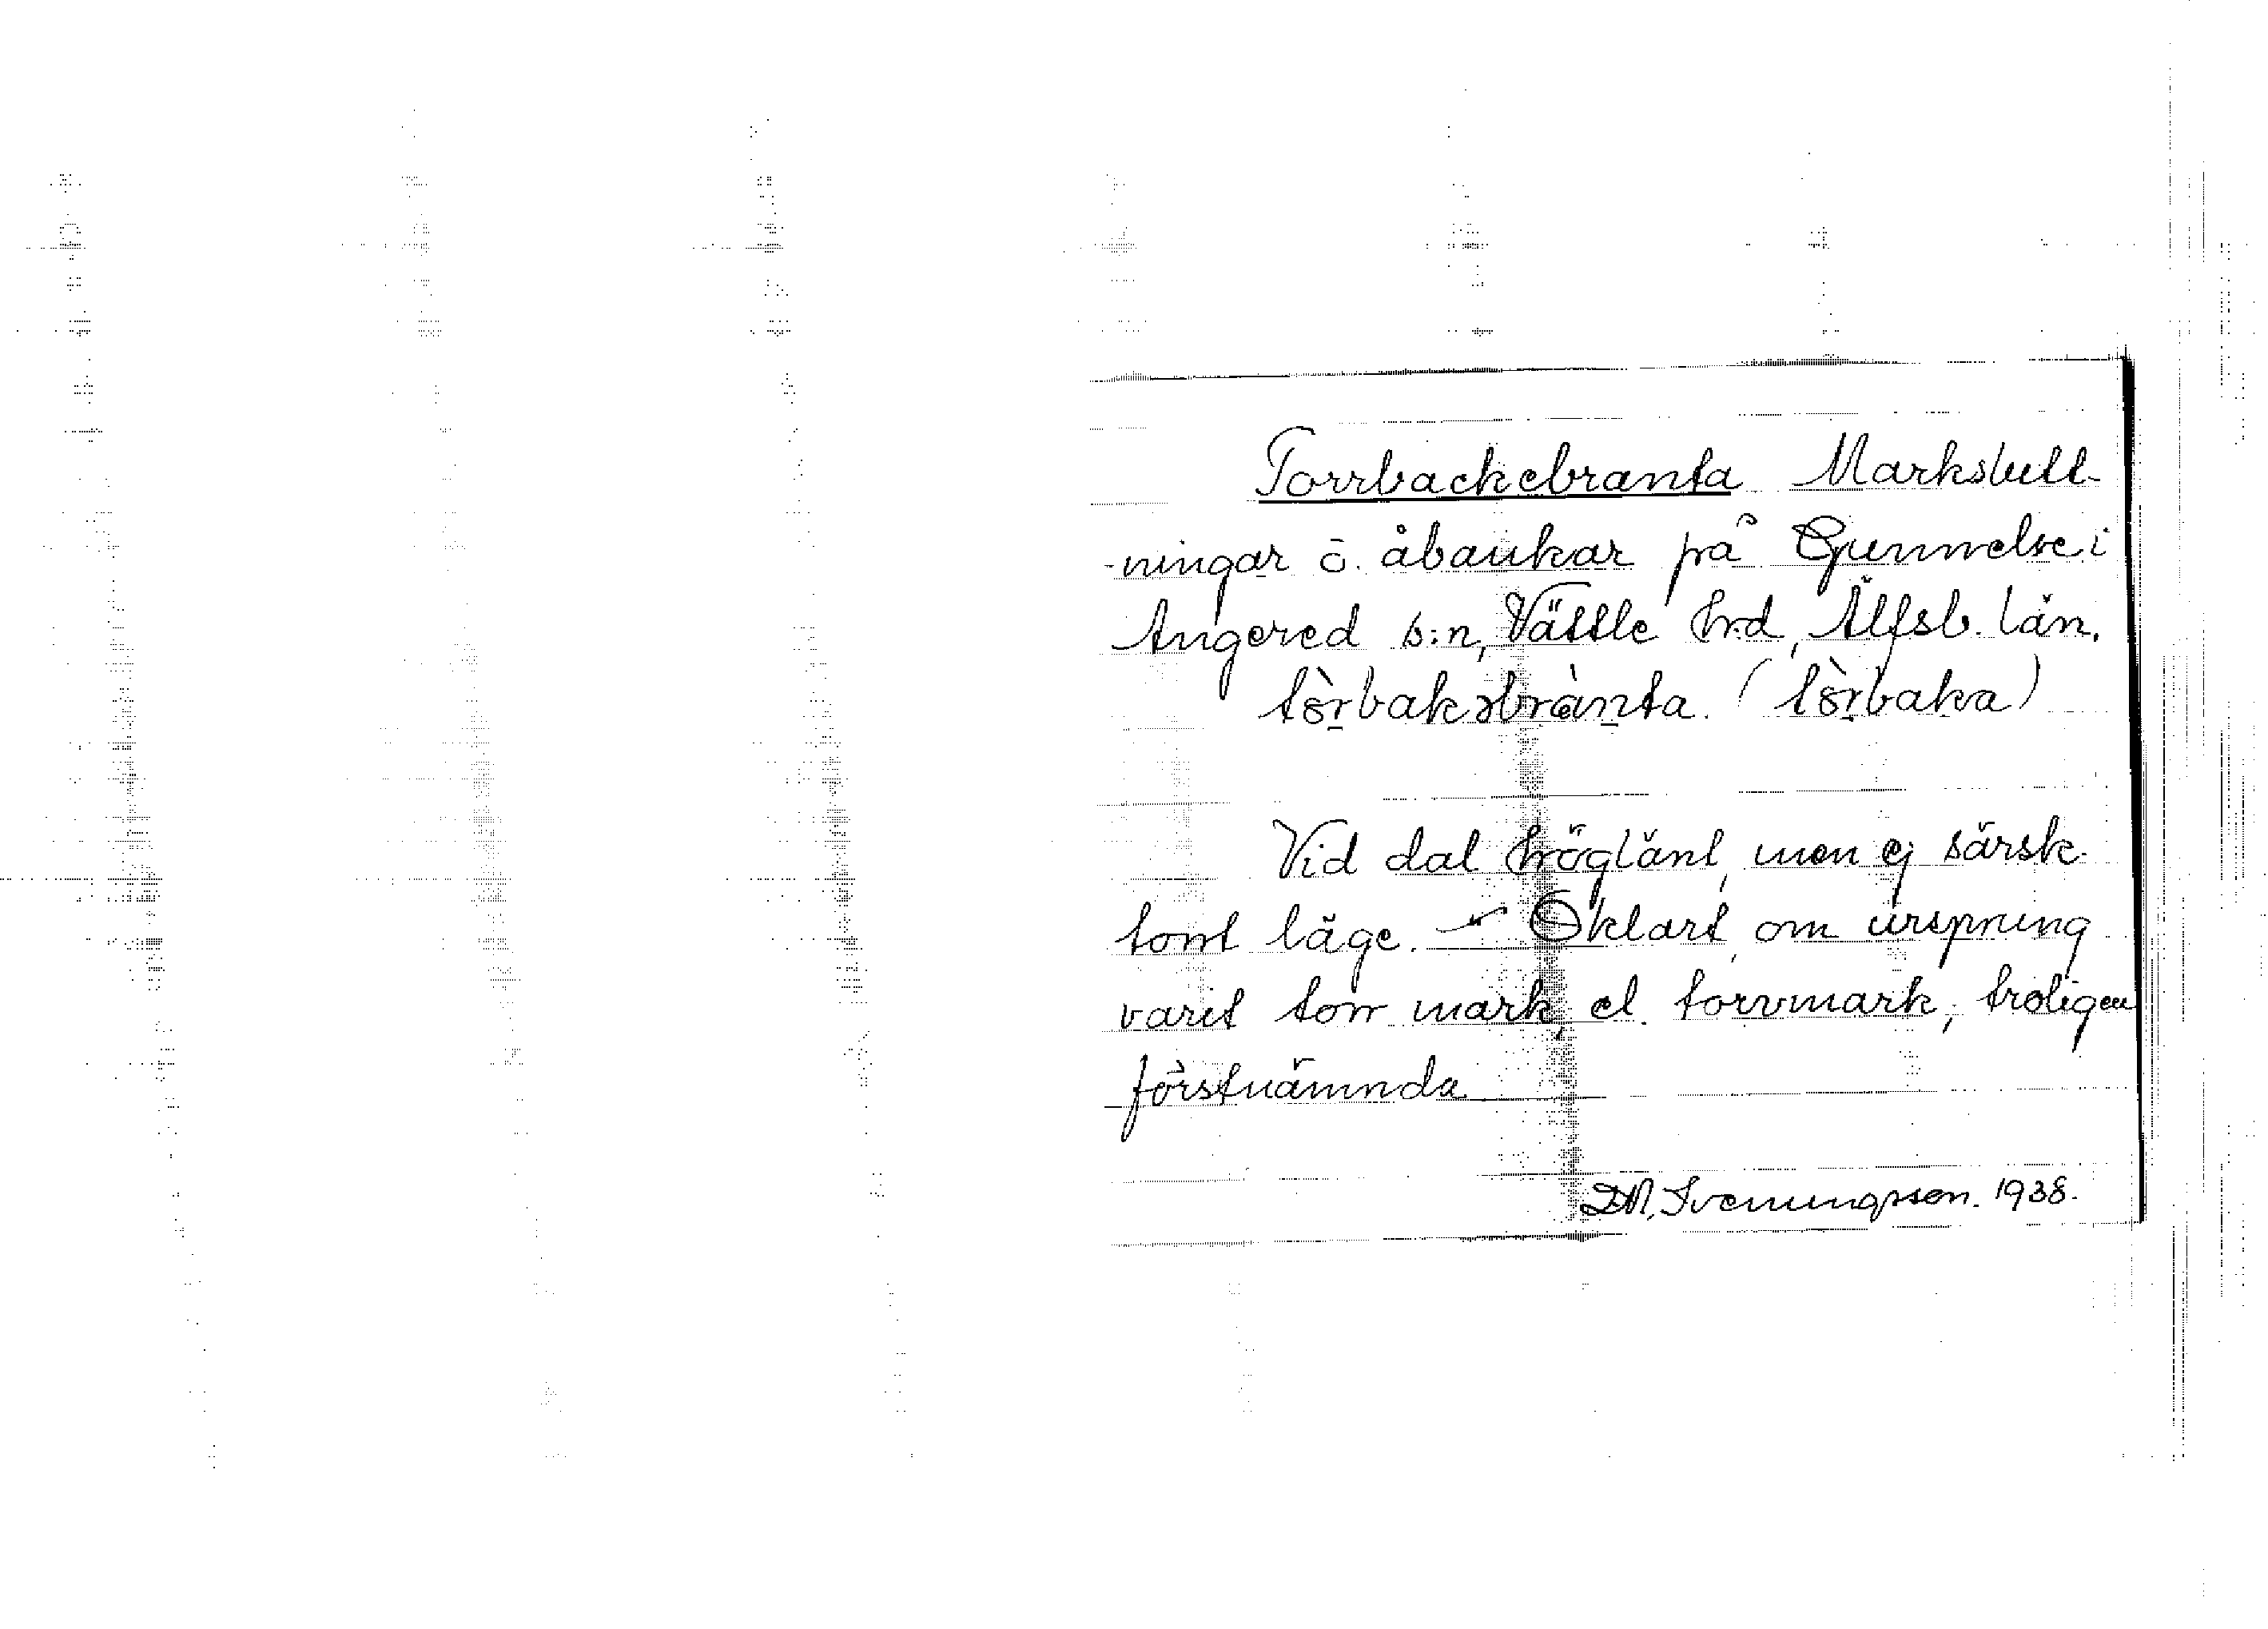 Torrbackebranta Markslutt-
-ningar ö. åbankar på Gunnelse i
Angered s:n, Vättle hrd, Älfsb. län.
tòrbakəbrànta. (tòrbaka)
Vid dal höglänt, men ej särsk.
torrt läge. – Oklart, om ursprung
varit torr mark, el. torvmark, troligen
förstnämnda
D.M. Svenningsson. 1938.